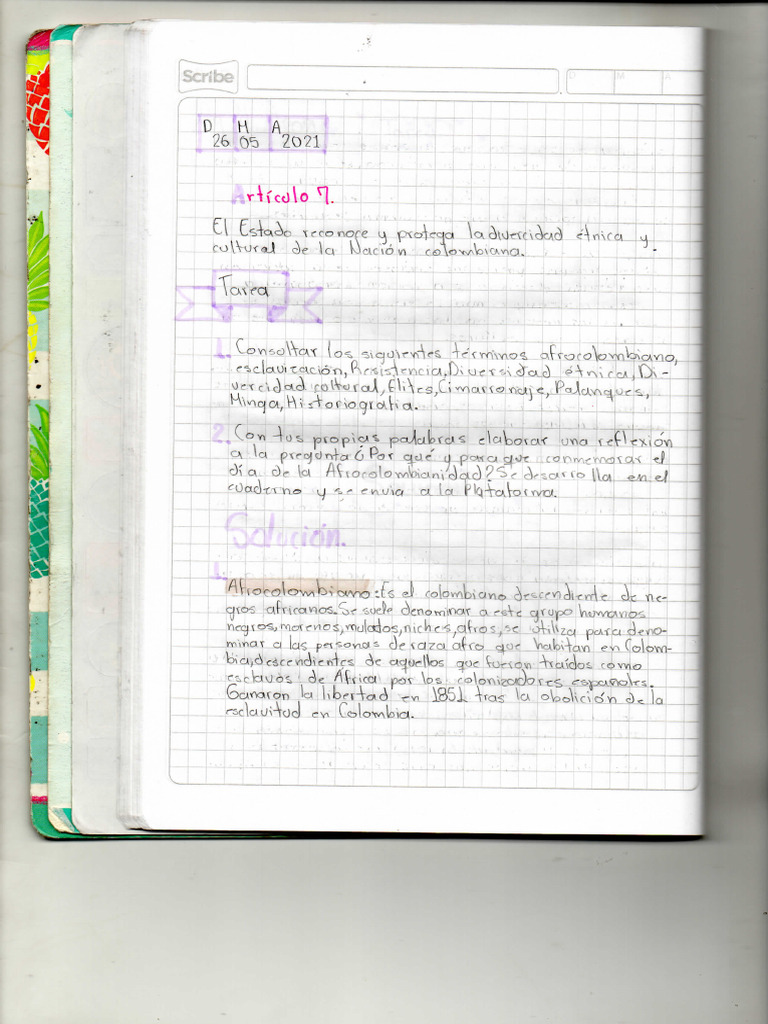 Scribe
D M A
D M A
26 05 2021
Artículo 7.
El Estado reconoce y protega la divercidad étnica y
cultural de la Nación colombiana.
Tarea
1. Consultar los siguientes términos afrocolombiano,
esclavización, Resistencia, Diversidad étnica, Di-
vercidad coltural, Elites, Cimarronaje, Palanques,
Minga, Historiografia.
2. Con tus propias palabras elaborar una reflexión
a la pregunta ¿Por qué y para que conmemorar el
día de la Afrocolombianidad? Se desarrolla en el
cuaderno y se envia a la Plataforma.
Solución.
1.
Afrocolombiano: Es el colombiano descendiente de ne-
gros africanos. Se suele denominar a este grupo humanos
negros, morenos, mulados, niches, afros, se utiliza para deno-
minar a las personas de raza afro que habitan en Colom-
bia, descendientes de aquellos que fueron traídos como
esclavos de África por los colonizadores españoles.
Ganaron la libertad en 1851 tras la obolición de la
esclavitud en Colombia.